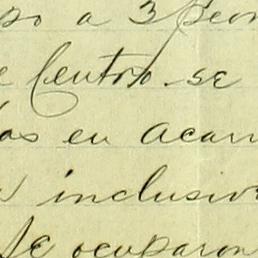 so a 3 peon
e Centro se
as en acarr
inclusive
se ocuparon